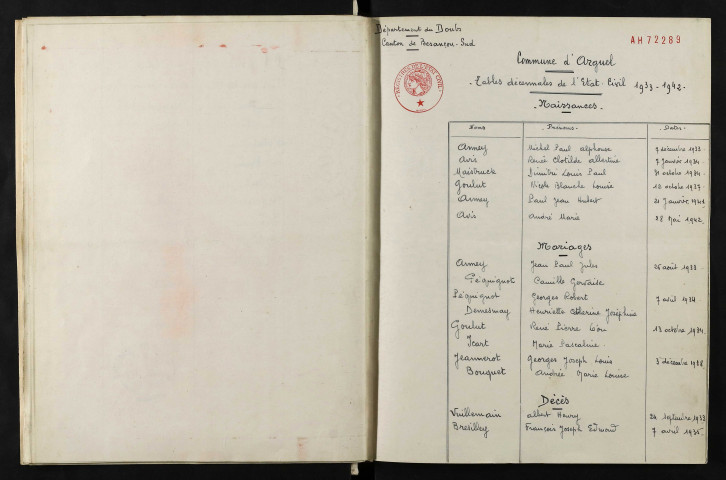 Département du Doubs
Canton de Besançon-Sud
AH72289
Commune d'Arguel
Tables décennales de l'Etat Civil 1933-1942
Naissances
Noms Prénoms Dates
Anney Michel Paul Alphonse 9 décembre 1933
Avis Renée Clotilde Albertine 7 janvier 1934
Maistruck Dimitri Louis Paul 31 octobre 1934
Goulut Nicole Blanche Louise 12 octobre 1937
Anney Paul Jean Hubert 21 janvier 1941
Avis André Marie 22 Mai 1942
Mariages
Anney Jean Paul Jules 26 août 1933
Péquignot Camille Gervaise
Péquignot Georges Robert 7 avril 1934
Demesmay Henriette Joséphine
Goulut René Pierre Léon 13 octobre 1934
Icart Marie Pascaline
Jeannerot Georges Joseph Louis 3 décembre 1938
Bouquet Andrée Marie Louise
Décès
Vuillemain Albert Henry 24 septembre 1933
Bresilley François Joseph Edmond 7 avril 1935